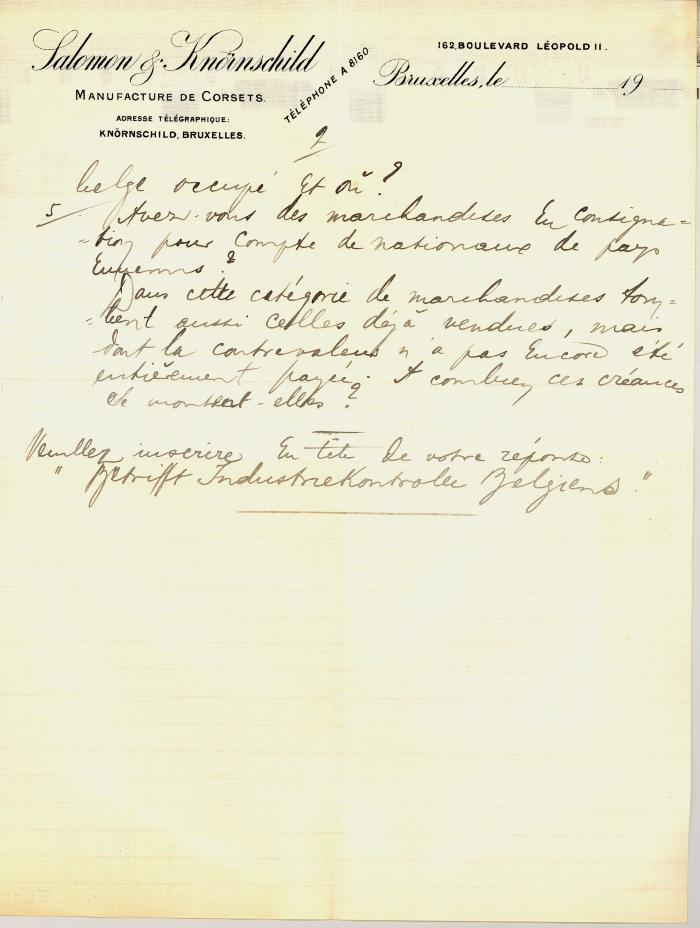 Salomon & Knörnschild
MANUFACTURE DE CORSETS.
ADRESSE TÉLÉGRAPHIQUE:
KNÖRNSCHILD, BRUXELLES.
TÉLÉPHONE A 8160
162, BOULEVARD LÉOPOLD II.
Bruxelles, le 19
2
belge occupé et où ?
5/. Avez-vous des marchandises en consigna-
-tion pour compte de nationaux de pays
Ennemis ?
Dans cette catégorie de marchandises tom-
-bent aussi celles déjà vendues, mais
dont la contrevaleur n'a pas encore été
entièrement payée. A combien ces créances
se montent-elles ?
Veuillez inscrire En tête de votre réponse:
"Betrifft Industriekontrolle Belgiens."